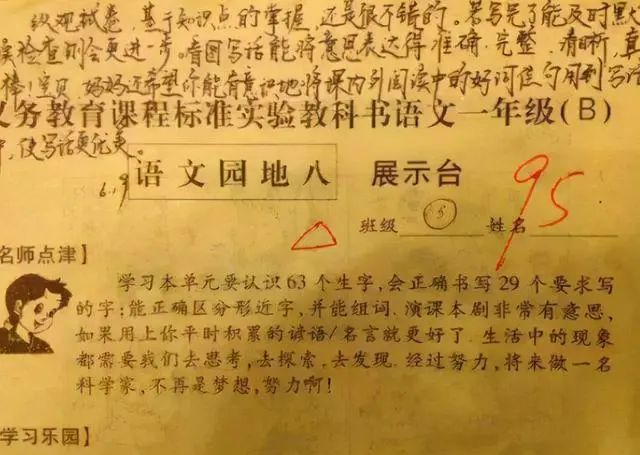 纵观试卷,基于知识点的掌握,还是很不错的。若写完了能及时默
读检查则会更进一步。看图写话能将意思表达得准确、完整、清晰,真
棒!宝贝,妈妈还希望你能有意识地将课内外阅读中的好词佳句用到写话
义务教育课程标准实验教科书语文一年级(B)
中,使写话更优美。
6.19
语文园地八 展示台
95
班级 5 姓名
名师点津】
学习本单元要认识63个生字,会正确书写29个要求写
的字;能正确区分形近字,并能组词、演课本剧非常有意思,
如果用上你平时积累的谚语/名言就更好了.生活中的现象
都需要我们去思考,去探索,去发现.经过努力,将来做一名
科学家,不再是梦想,努力啊!
学习乐园】